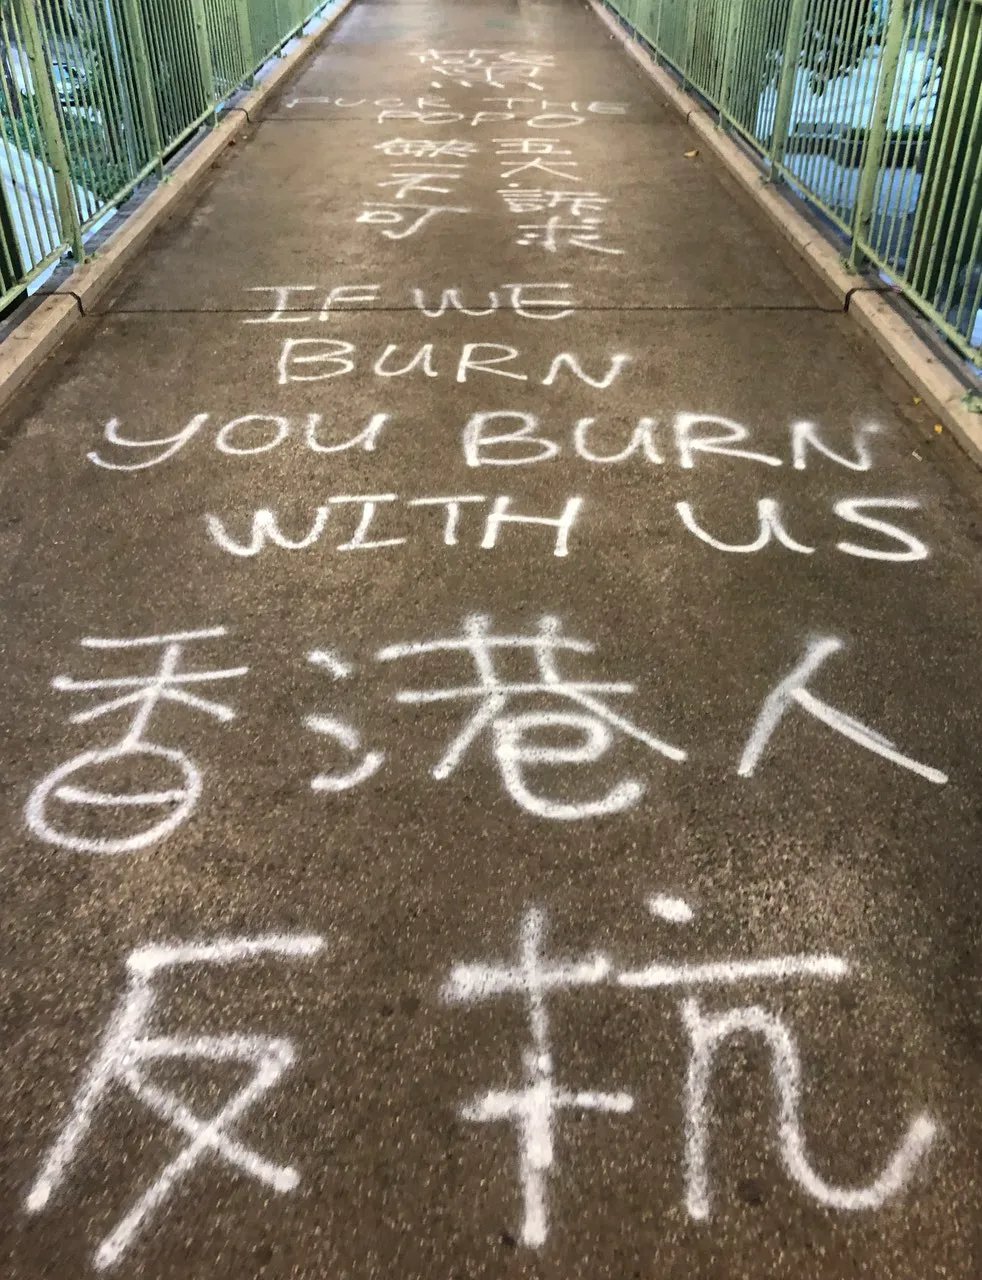 FUCK THE
POPO
五大訴求
缺一不可
IF WE
BURN
YOU BURN
WITH US
香港人
反抗